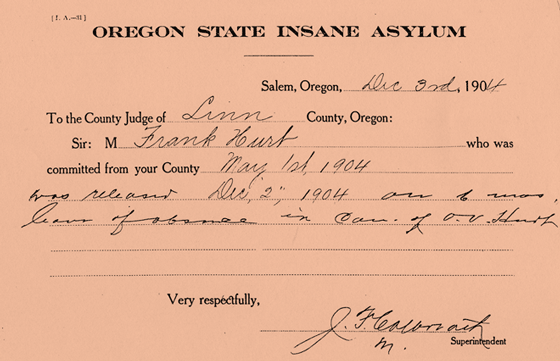 [I. A.—31]
OREGON STATE INSANE ASYLUM
Salem, Oregon, Dec 3rd, 1904
To the County Judge of Linn County, Oregon:
Sir: M Frank Hurt who was
committed from your County May 1st, 1904
was released Dec, 2", 1904 on 6 mos,
leave of absence in Car. of O.V. Hurt
Very respectfully,
J. F.
M. Superintendent